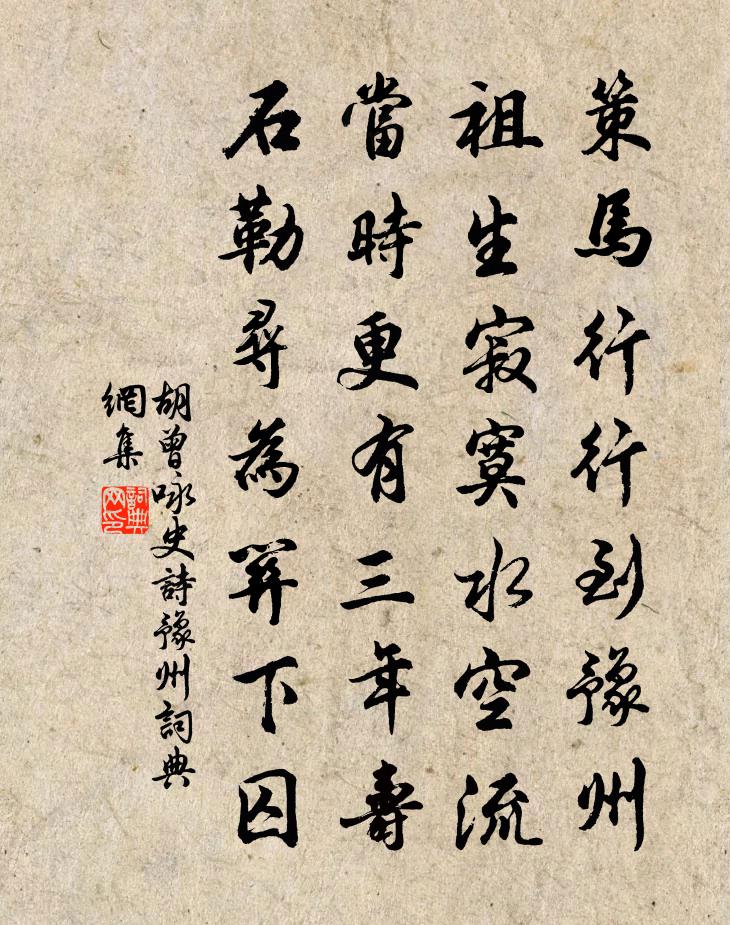 策馬行行到豫州
祖生寂寞水空流
當時更有三年壽
石勒尋為關下囚
胡曾咏史詩豫州詞典
網集
詞典網印